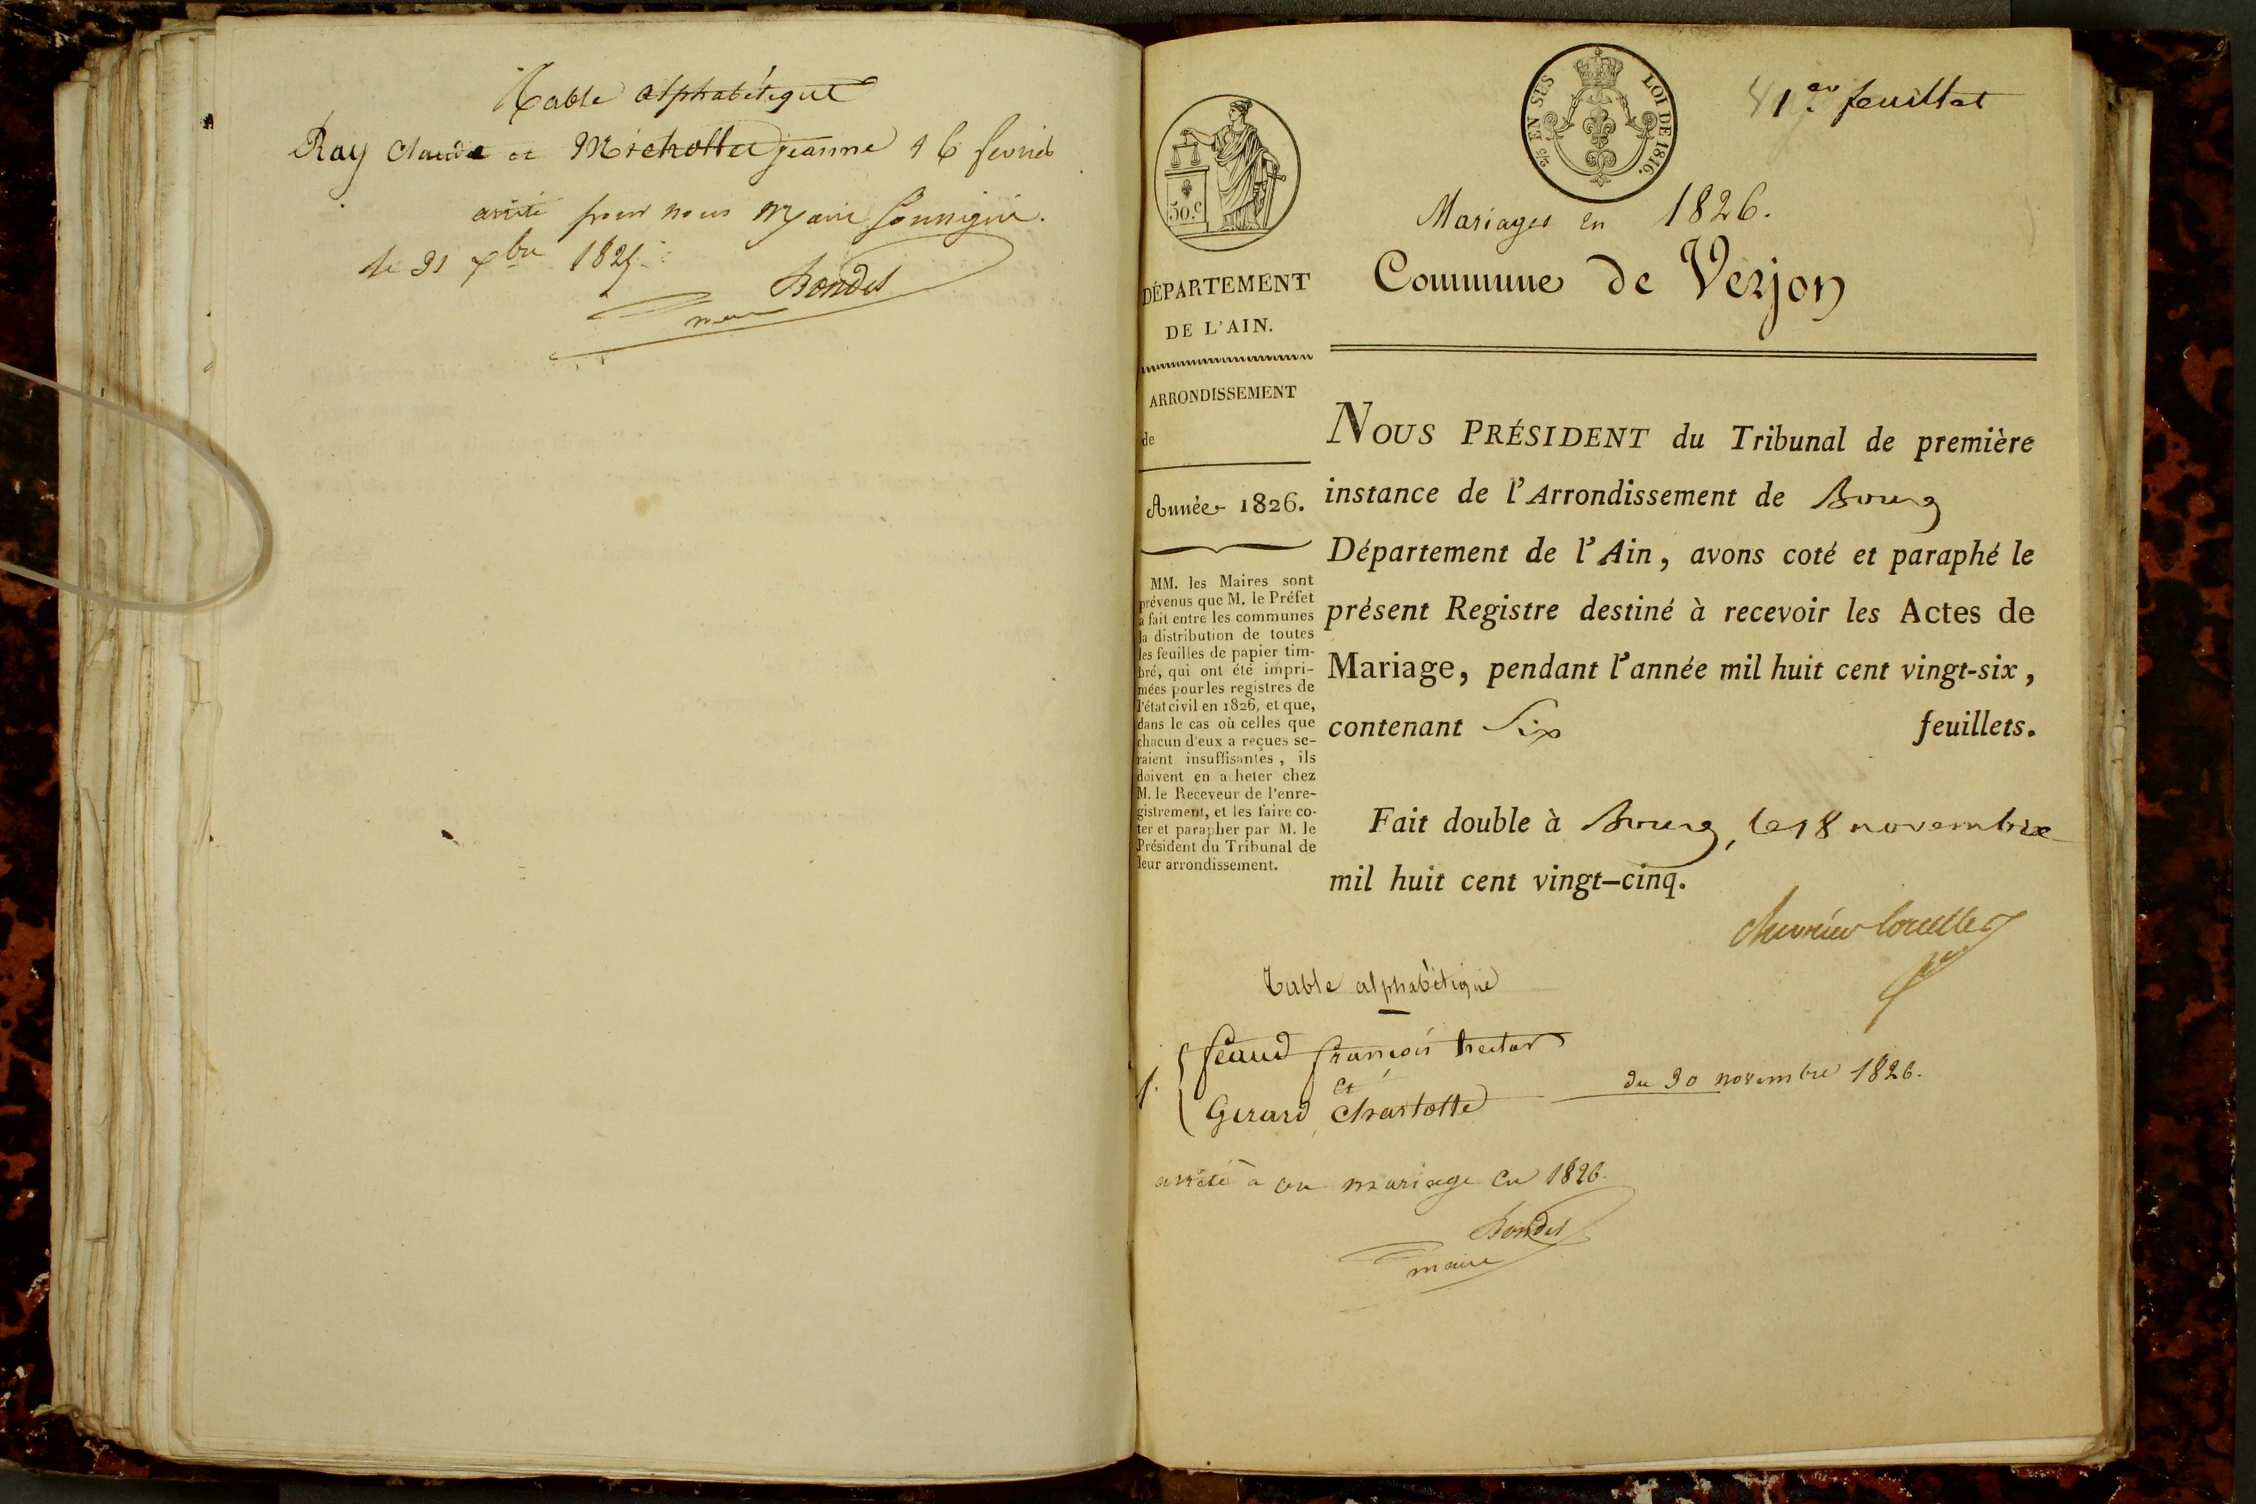 Table alphabétique
Ray Claude et Michollet jeanne 16 fevrier
arrété pour nous Maire soussigné.
le 31 Xbre 1825.
Bondet
maire
EN SUS
LOI DE 1816.
1er feuillet
50.c
Mariages en 1826.
Commune de Verjon
DÉPARTEMENT
DE L'AIN.
ARRONDISSEMENT
de
Année 1826.
MM. les Maires sont
prévenus que M. le Préfet
a fait entre les communes
la distribution de toutes
les feuilles de papier tim-
bré, qui ont été impri-
mées pour les registres de
l'état civil en 1826, et que,
dans le cas où celles que
chacun d'eux a reçues se-
raient insuffisantes, ils
doivent en acheter chez
M. le Receveur de l'enre-
gistrement, et les faire co-
ter et parapher par M. le
Président du Tribunal de
leur arrondissement.
NOUS PRÉSIDENT du Tribunal de première
instance de l'Arrondissement de Bourg
Département de l'Ain, avons coté et paraphé le
présent Registre destiné à recevoir les Actes de
Mariage, pendant l'année mil huit cent vingt-six,
contenant Six feuillets.
Fait double à Bourg, le 18 novembre
mil huit cent vingt-cinq.
Table alphabétique
1. Féaud françois hector
et
Gerard Charlotte du 30 novembre 1826.
arrété a un mariage en 1826.
Bondet
maire